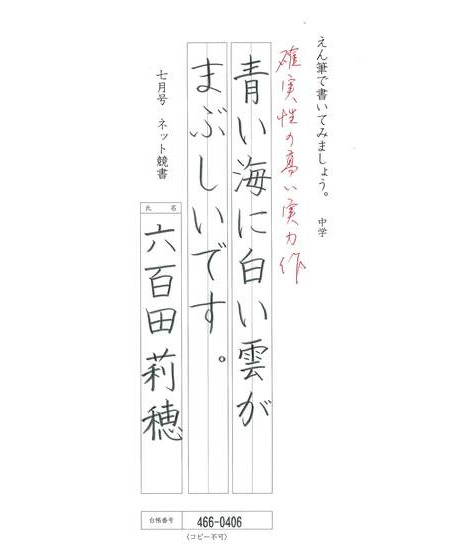 えん筆で書いてみましょう。 中学
確実性の高い実力作
青い海に白い雲が
まぶしいです。
七月号 ネット競書
氏名
六百田莉穂
台帳番号 466-0406
(コピー不可)